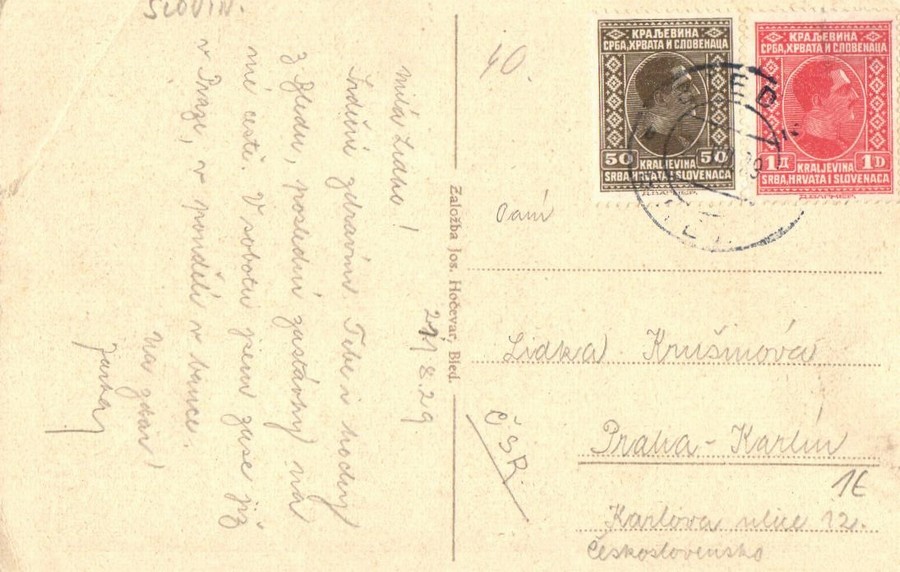 SLOVIN.
40.
КРАЉЕВИНА
СРБА, ХРВАТА И СЛОВЕНАЦА
50 50
KRALJEVINA
SRBA, HRVATA I SLOVENACA
КРАЉЕВИНА
СРБА, ХРВАТА И СЛОВЕНАЦА
1Д 1D
KRALJEVINA
SRBA, HRVATA I SLOVENACA
BLED
21/8.29
Milá Lidko!
Srdečný zdravím Tebe i hochy
z Bledu, poslední zastávky na
mé cestě. V sobotu jsem zase již
v Praze, v pondělí v bance.
Na zdar!
Založba Jos. Hočevar, Bled.
Paní
Lidka Krušinová
Praha-Karlín
Karlova ulice 12.
Československo
ČSR
1€